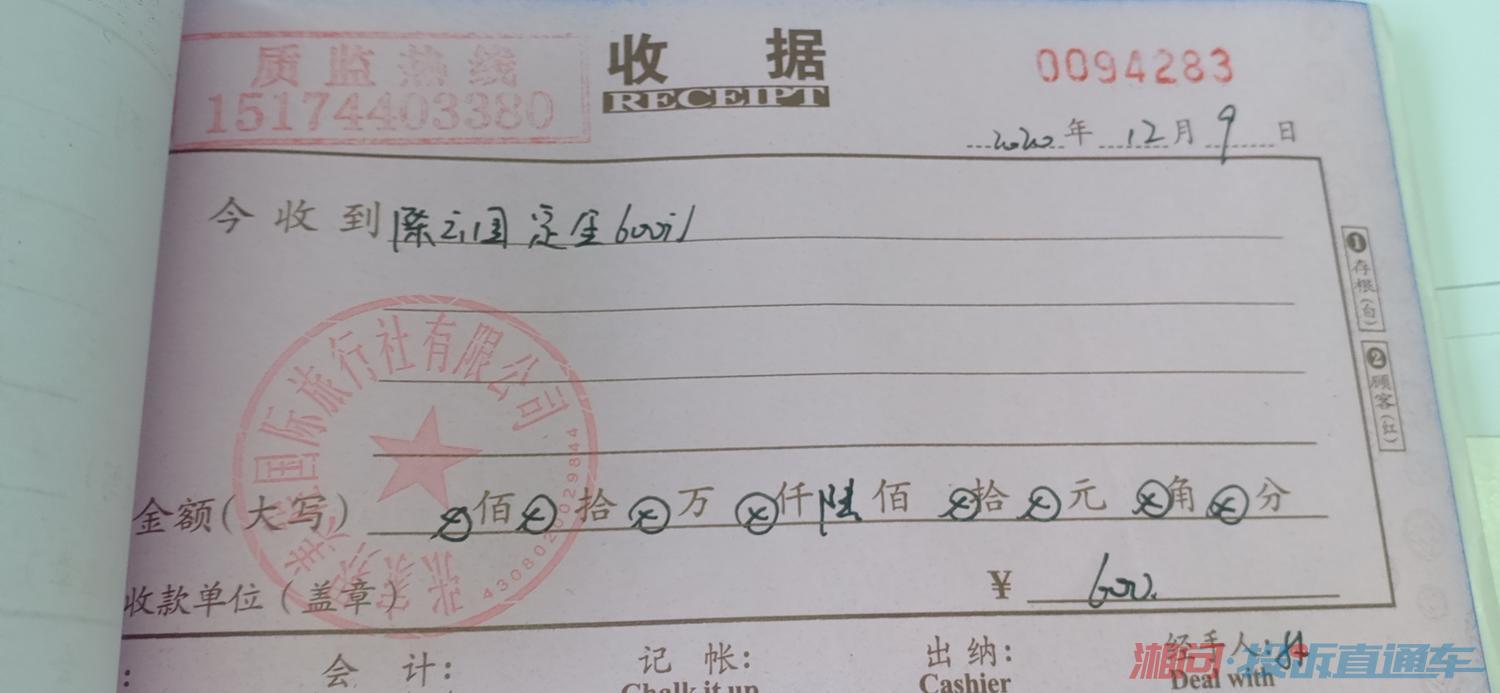 质监热线
15174403380
收 据
RECEIPT
0094283
2020年12月9日
今收到陈立国定金600元
国际旅行社有限公司
张家界
4308020029844
❶存根(白)
❷顾客(红)
金额(大写) ⊗佰⊗拾⊗万⊗仟陆佰⊗拾⊗元⊗角⊗分
收款单位(盖章)
¥ 600.
会 计:
记 帐:
Chalk it up
出 纳:
Cashier
经手人:
Deal with
湘问·投诉直通车